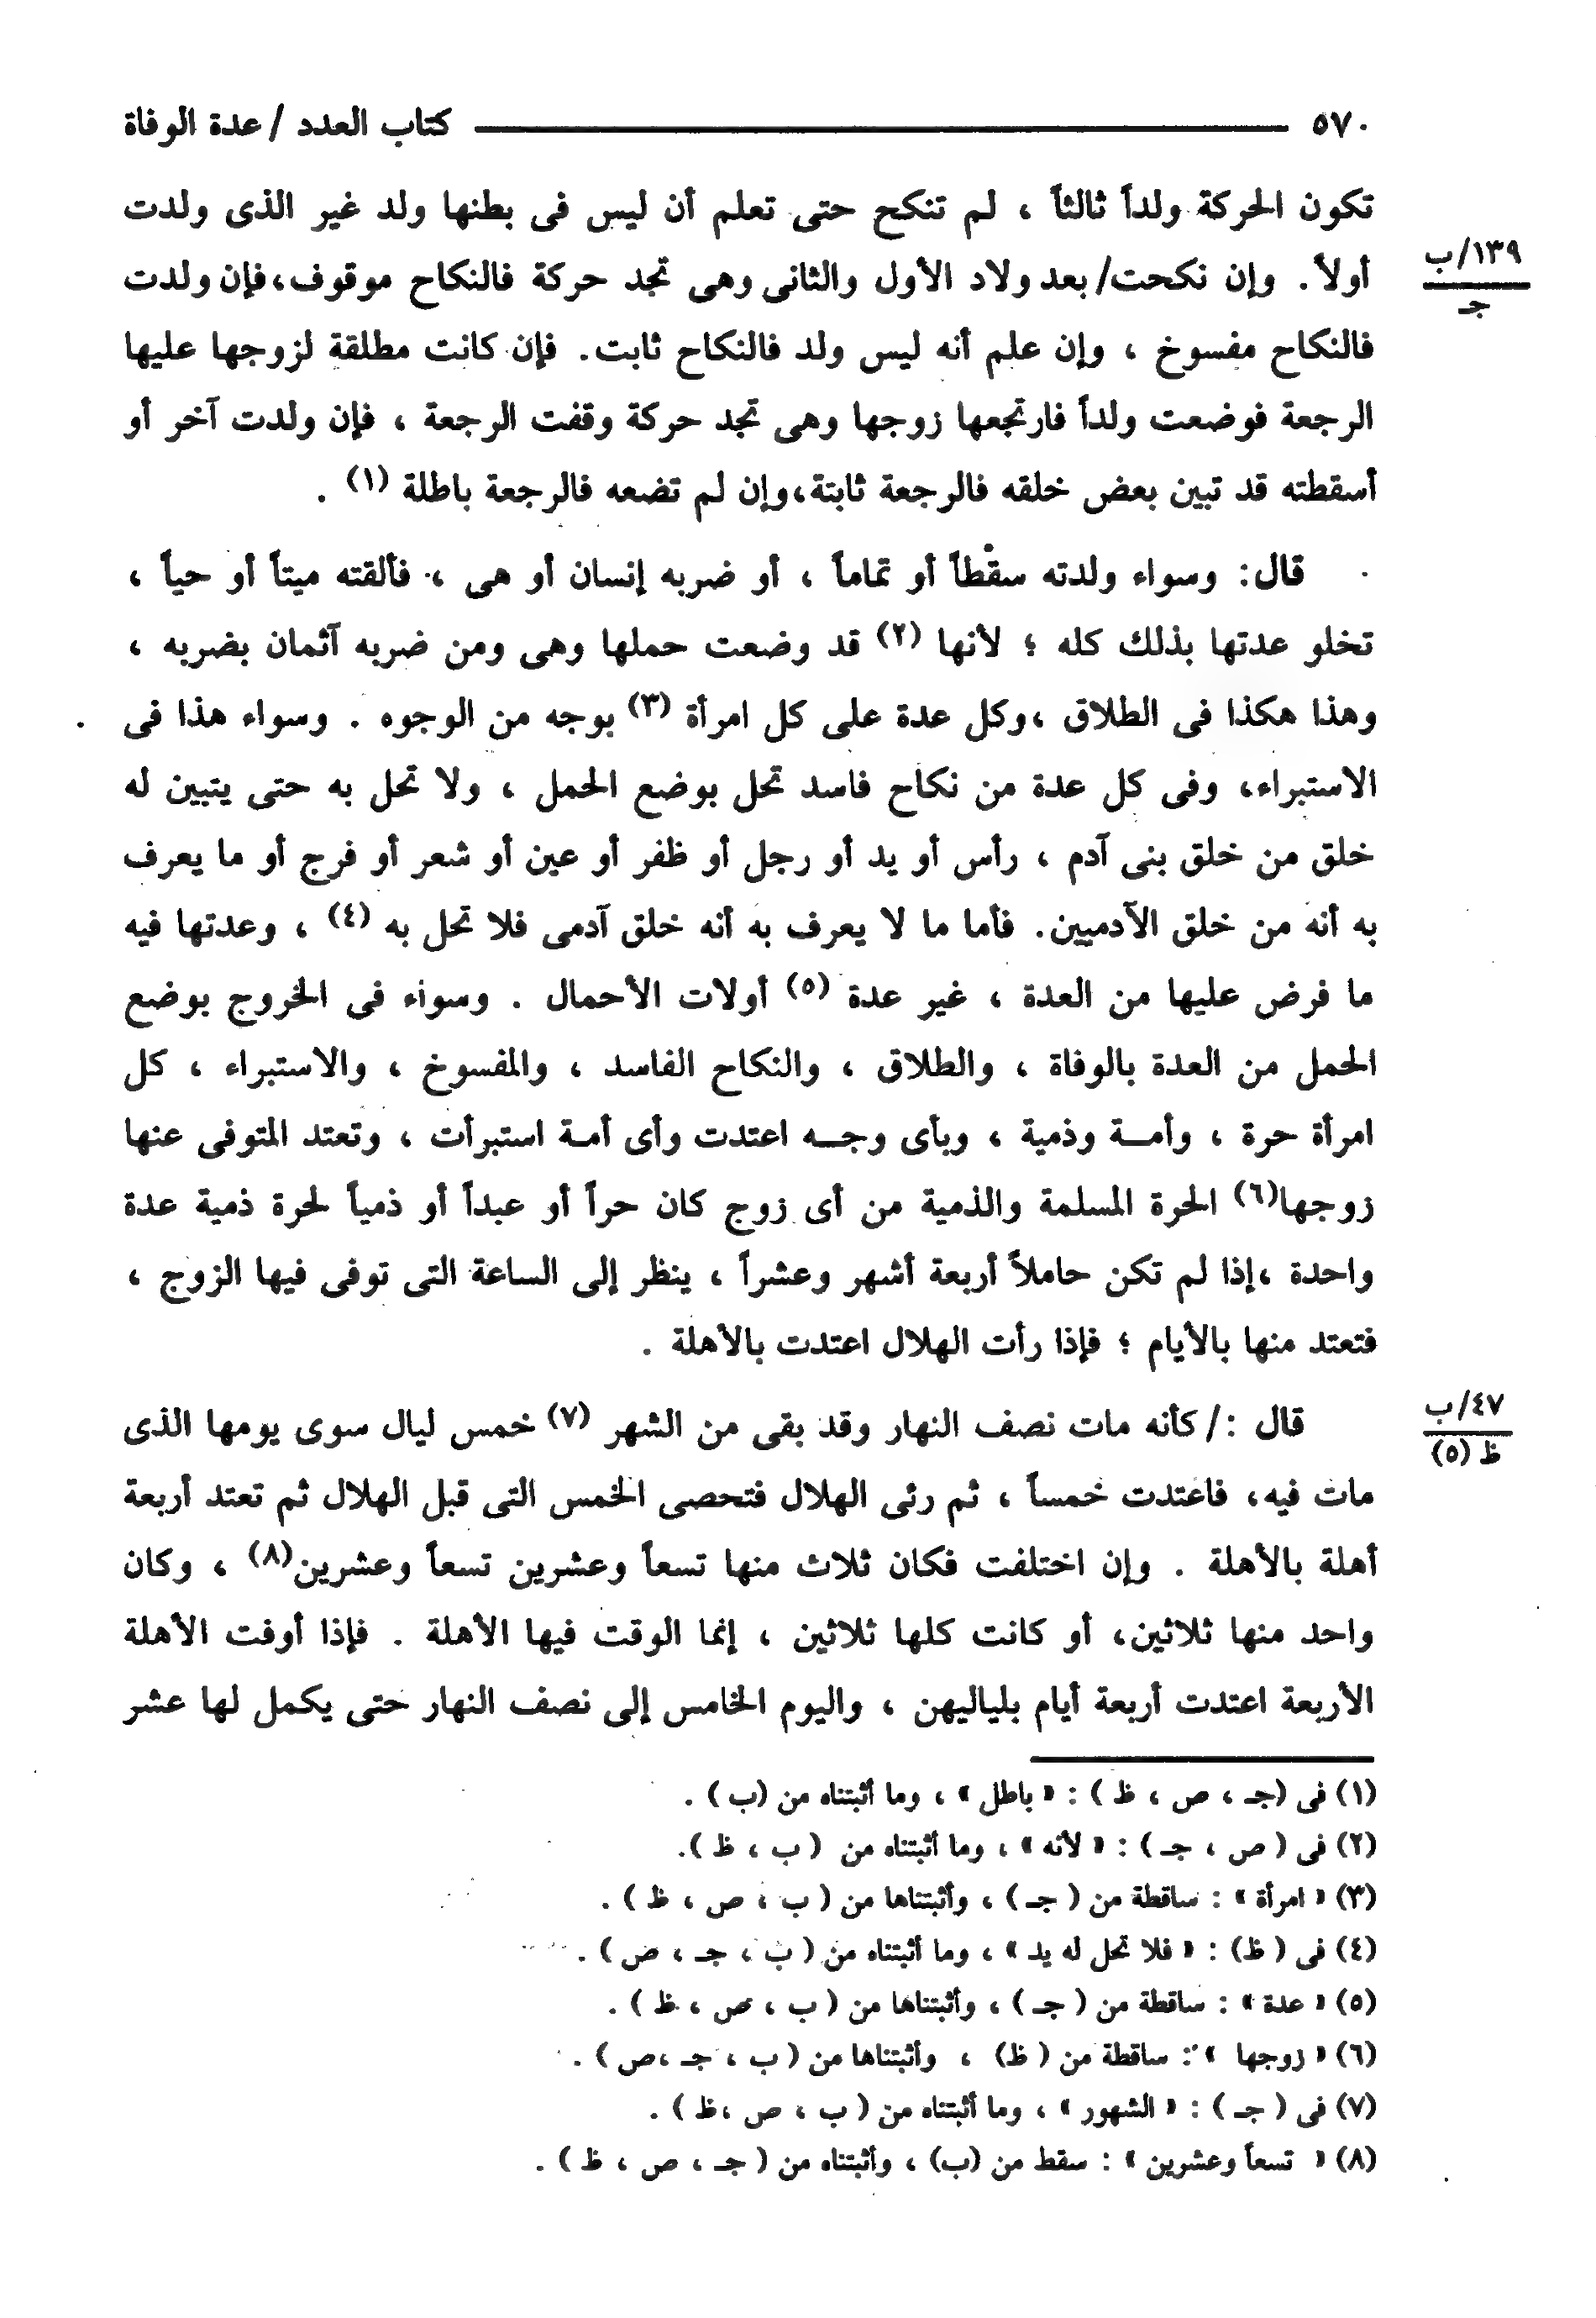 ٥٧٠ كتاب العدد / عدة الوفاة
تكون الحركة ولداً ثالثاً ، لم تنكح حتى تعلم أن ليس فى بطنها ولد غير الذى ولدت
أولاً . وإن نكحت/ بعد ولاد الأول والثانى وهى تجد حركة فالنكاح موقوف،فإن ولدت
١٣٩/ب
جـ
فالنكاح مفسوخ ، وإن علم أنه ليس ولد فالنكاح ثابت. فإن كانت مطلقة لزوجها عليها
الرجعة فوضعت ولداً فارتجعها زوجها وهى تجد حركة وقفت الرجعة ، فإن ولدت آخر أو
أسقطته قد تبين بعض خلقه فالرجعة ثابتة،وإن لم تضعه فالرجعة باطلة (١) .
قال: وسواء ولدته سقْطاً أو تماماً ، أو ضربه إنسان أو هى ، فألقته ميتاً أو حياً ،
تخلو عدتها بذلك كله ؛ لأنها (٢) قد وضعت حملها وهى ومن ضربه آثمان بضربه ،
وهذا هكذا فى الطلاق ،وكل عدة على كل امرأة (٣) بوجه من الوجوه . وسواء هذا فى
الاستبراء، وفى كل عدة من نكاح فاسد تحل بوضع الحمل ، ولا تحل به حتى يتبين له
خلق من خلق بنى آدم ، رأس أو يد أو رجل أو ظفر أو عين أو شعر أو فرج أو ما يعرف
به أنه من خلق الآدميين. فأما ما لا يعرف به أنه خلق آدمى فلا تحل به (٤) ، وعدتها فيه
ما فرض عليها من العدة ، غير عدة (٥) أولات الأحمال . وسواء فى الخروج بوضع
الحمل من العدة بالوفاة ، والطلاق ، والنكاح الفاسد ، والمفسوخ ، والاستبراء ، كل
امرأة حرة ، وأمــة وذمية ، وبأى وجــه اعتدت وأى أمـة استبرأت ، وتعتد المتوفى عنها
زوجها(٦) الحرة المسلمة والذمية من أى زوج كان حراً أو عبداً أو ذمياً لحرة ذمية عدة
واحدة ،إذا لم تكن حاملاً أربعة أشهر وعشراً ، ينظر إلى الساعة التى توفى فيها الزوج ،
فتعتد منها بالأيام ؛ فإذا رأت الهلال اعتدت بالأهلة .
قال :/ كأنه مات نصف النهار وقد بقى من الشهر (٧) خمس ليال سوى يومها الذى
٤٧/ب
ظ (٥)
مات فيه، فاعتدت خمساً ، ثم رئى الهلال فتحصى الخمس التى قبل الهلال ثم تعتد أربعة
أهلة بالأهلة . وإن اختلفت فكان ثلاث منها تسعاً وعشرين تسعاً وعشرين(٨) ، وكان
واحد منها ثلاثين، أو كانت كلها ثلاثين ، إنما الوقت فيها الأهلة . فإذا أوفت الأهلة
الأربعة اعتدت أربعة أيام بلياليهن ، واليوم الخامس إلى نصف النهار حتى يكمل لها عشر
(١) فى (جـ ، ص ، ظ ) : « باطل » ، وما أثبتناه من (ب ) .
(٢) فى ( ص ، جـ ) : « لأنه » ، وما أثبتناه من ( ب ، ظ ).
(٣) « امرأة » : ساقطة من ( جـ ) ، وأثبتناها من ( ب ، ص ، ظ ) .
(٤) فى ( ظ) : « فلا تحل له يد » ، وما أثبتناه من ( ب ، جـ ، ص ) .
(٥) « عدة » : ساقطة من ( جـ ) ، وأثبتناها من ( ب ، ص ، ظ ) .
(٦) « زوجها » : ساقطة من ( ظ) ، وأثبتناها من ( ب ، جـ ،ص ) .
(٧) فى ( جـ ) : « الشهور » ، وما أثبتناه من ( ب ، ص ،ظ ) .
(٨) « تسعاً وعشرين » : سقط من (ب) ، وأثبتناه من ( جـ ، ص ، ظ ) .